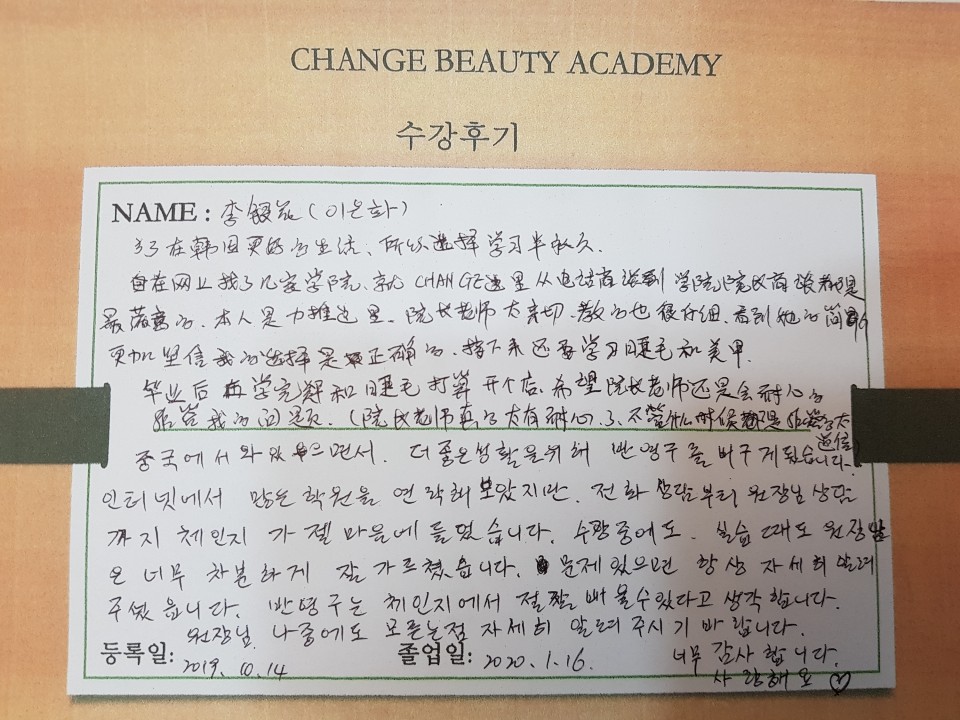 CHANGE BEAUTY ACADEMY
수강후기
NAME : 李银花 (이은화)
为了在韩国更好的生活、所以选择学习半永久.
自在网上找了几家学院、就 CHANGE这里从电话商谈到 学院院长商谈都是
最满意的. 本人是力推这里. 院长老师太亲切. 教的也很仔细. 看到她的简单
更加坚信我的选择是正确的. 接下来还要学习睫毛和美甲.
毕业后 再学完 和睫毛打算开个店. 希望院长老师还是会耐心的
我的问题. (院长老师真的太有耐心了. 不管什么时候都是
중국에서 와 면서. 더 좋은 생활을 위해 반영구를 배우게 됬습니다.
인터넷에서 많은 학원을 연락해 보았지만. 전화 상담부터 원장님 상담
까지 체인지가 젤 마음에 들었습니다. 수강중에도. 실습 때도 원장쌤
은 너무 차분하게 잘 가르쳤습니다. 문제 있으면 항상 자세히 알려
주셨습니다. 반영구는 체인지에서 절짤 배울수있다고 생각합니다.
원장님. 나중에도 모르는점 자세히 알려 주시기 바랍니다.
등록일: 2019. 10. 14 졸업일: 2020. 1. 16. 너무 감사합니다.
사랑해요 ♡